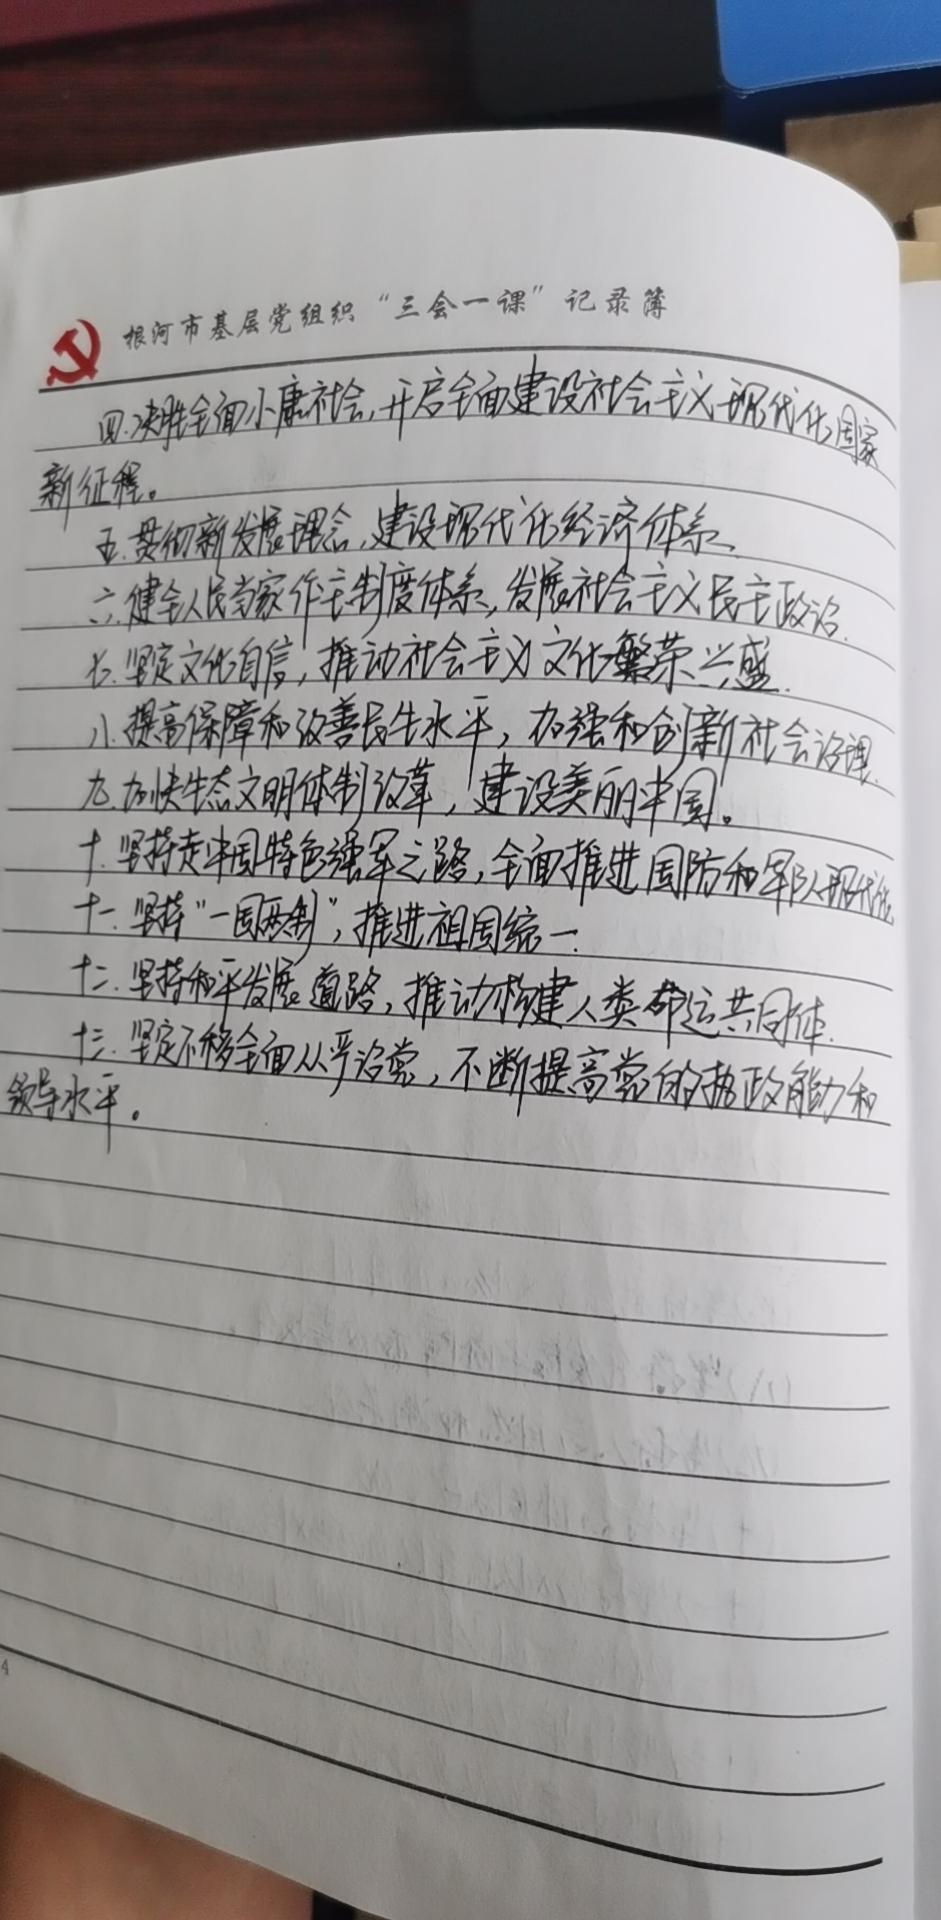 根河市基层党组织“三会一课”记录簿
四.决胜全面小康社会,开启全面建设社会主义现代化国家
新征程。
五.贯彻新发展理念,建设现代化经济体系.
六.健全人民当家作主制度体系,发展社会主义民主政治.
七.坚定文化自信,推动社会主义文化繁荣兴盛.
八.提高保障和改善民生水平,加强和创新社会治理.
九.加快生态文明体制改革,建设美丽中国。
十.坚持走中国特色强军之路,全面推进国防和军队现代化
十一.坚持“一国两制”,推进祖国统一.
十二.坚持和平发展道路,推动构建人类命运共同体.
十三.坚定不移全面从严治党,不断提高党的执政能力和
领导水平。
4